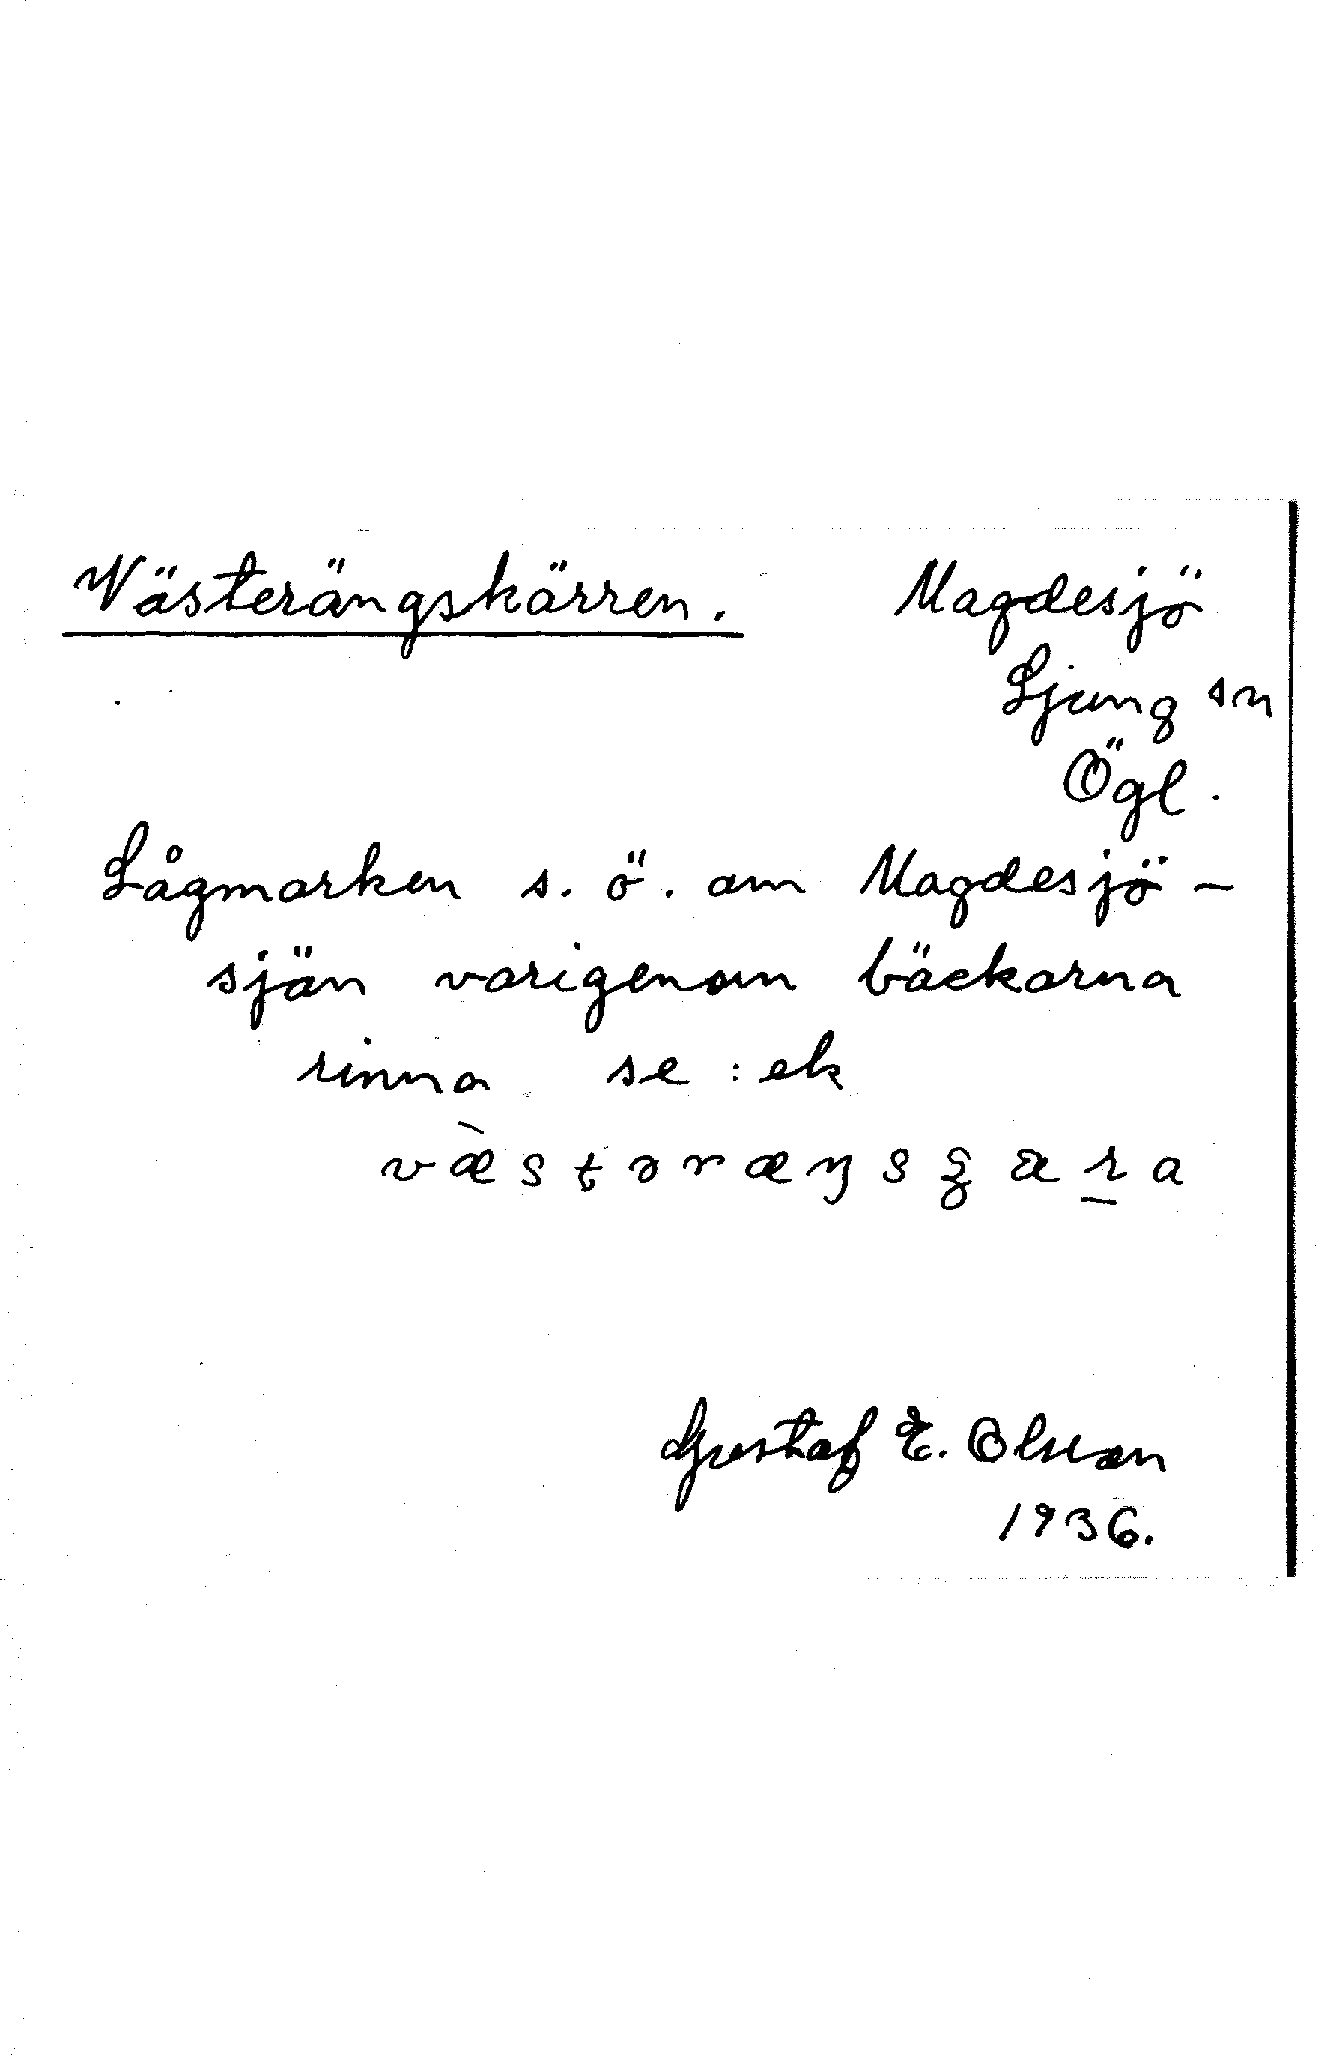 Västerängskärren. Magdesjö
Ljung sn
Ögl.
Lågmarken s. ö. om Magdesjö-
sjön varigenom bäckarna
rinna se: ek
væ̀stəræŋsꞔæra
Gustaf E. Olsson
1936.